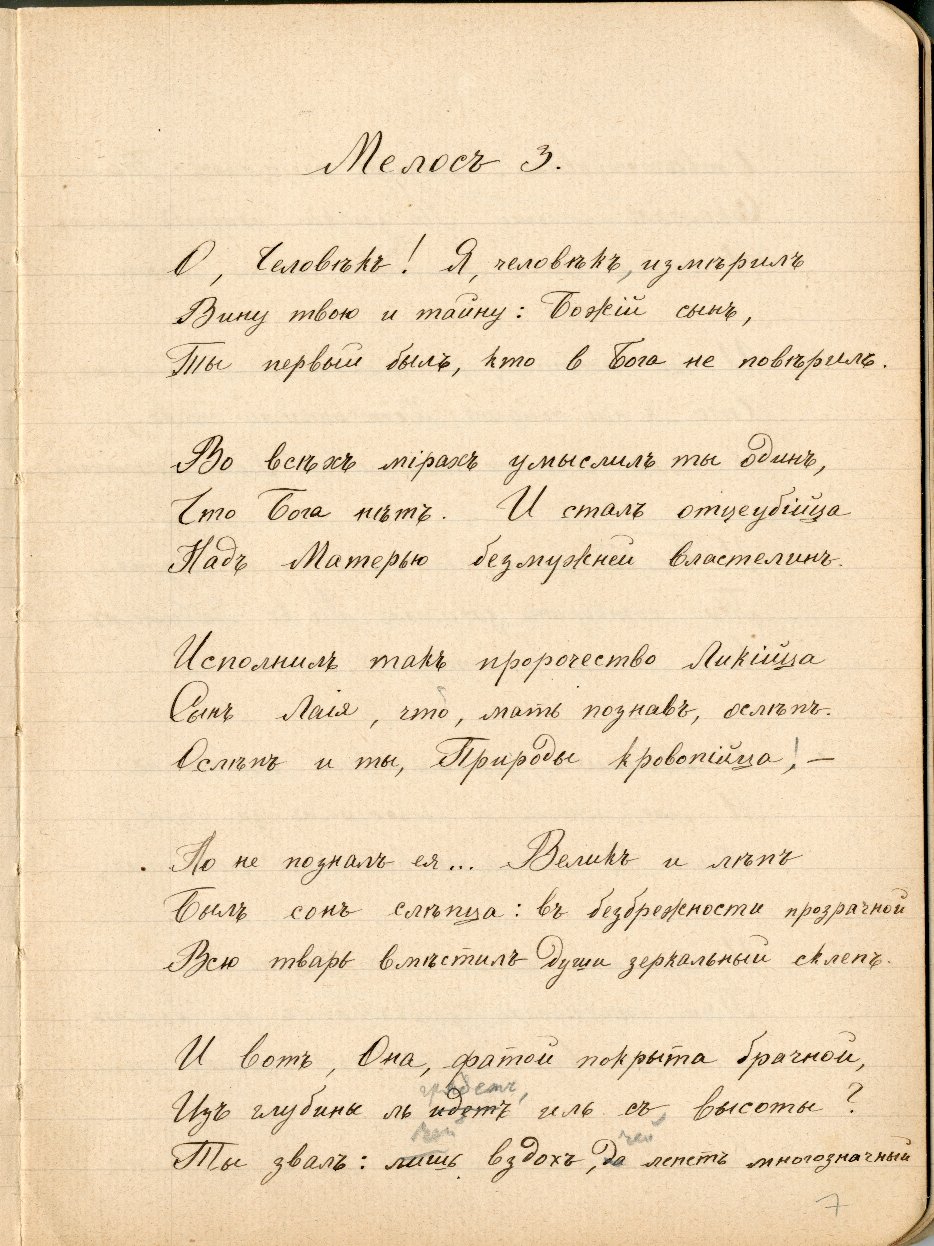 Мелосъ 3.
О, Человѣкъ! Я, человѣкъ, измѣрилъ
Вину твою и тайну: Божій сынъ,
Ты первый былъ, кто в Бога не повѣрилъ.
Во всѣхъ мірахъ умыслилъ ты одинъ,
Что Бога нѣтъ. И сталъ отцеубійца
Надъ Матерью безмужней властелинъ.
Исполнилъ такъ пророчество Ликійца
Сынъ Лаія, что, мать познавъ, ослѣпъ.
Ослѣпъ и ты, Природы кровопійца! —
Но не позналъ ея... Великъ и лѣпъ
Былъ сонъ слѣпца: въ безбрежности прозрачной
Всю тварь вмѣстилъ души зеркальный склепъ.
И вотъ, Она, фатой покрыта брачной,
грядетъ,
Изъ глубины ль идетъ иль съ высоты?
чей чей
Ты звалъ: лишь вздохъ, да лепетъ многозначный
7